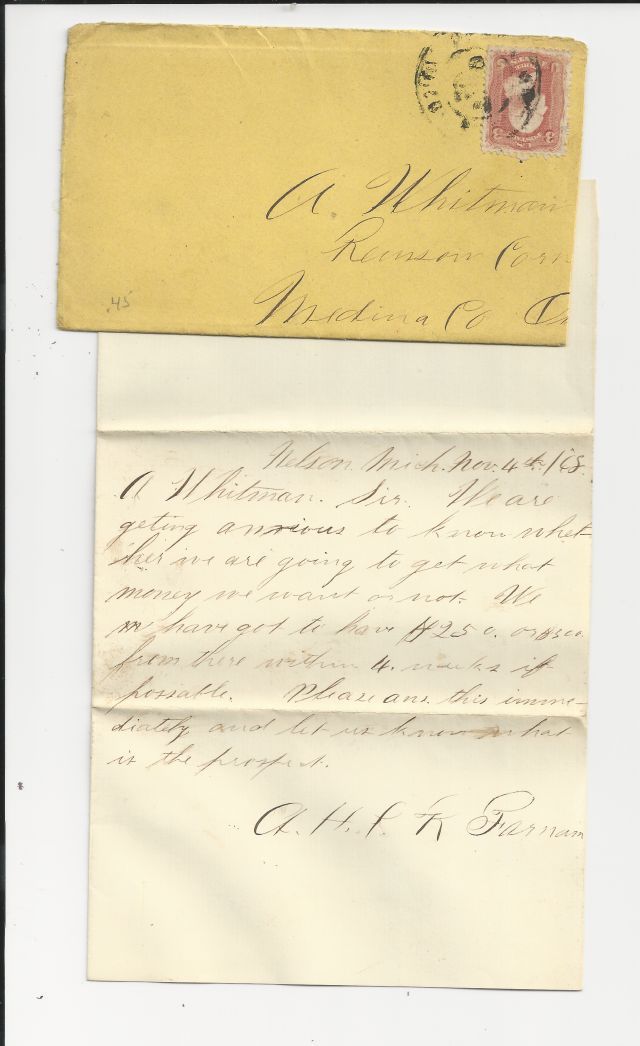 A Whitman
Remson Corn
Medina Co
.45
Nelson Mich. Nov. 4th
A Whitman. Sir. We are
geting anxious to know whet-
her we are going to get what
money we want or not. We
have got to have $250. or
from there within 4. weeks if
possable. Please ans. this imme-
diately and let us know what
is the prospect.
A. H. Farnam